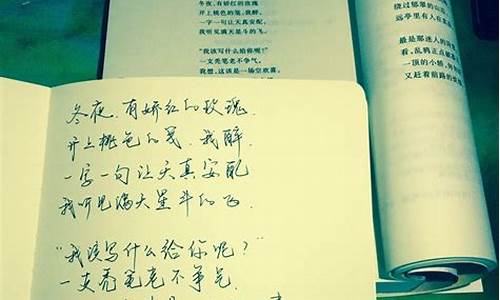 冬夜，有娇红的玫瑰
开上桃色的笺，我醉，
一字一句让天真安配，
我听见满天星斗的飞。
“我该写什么给你呢？”
一支秃笔老不争气，
绕过郁翠的山
远亭里有人在
最是那迷人的
看，乱鸦正点破
一顶的小轿，
又赶着前路的
冬夜，有娇红的玫瑰，
开上桃色的笺，我醉，
一字一句让天真安配
我听见满天星斗的飞
“我该写什么给你呢？”
一支秃笔老不争气